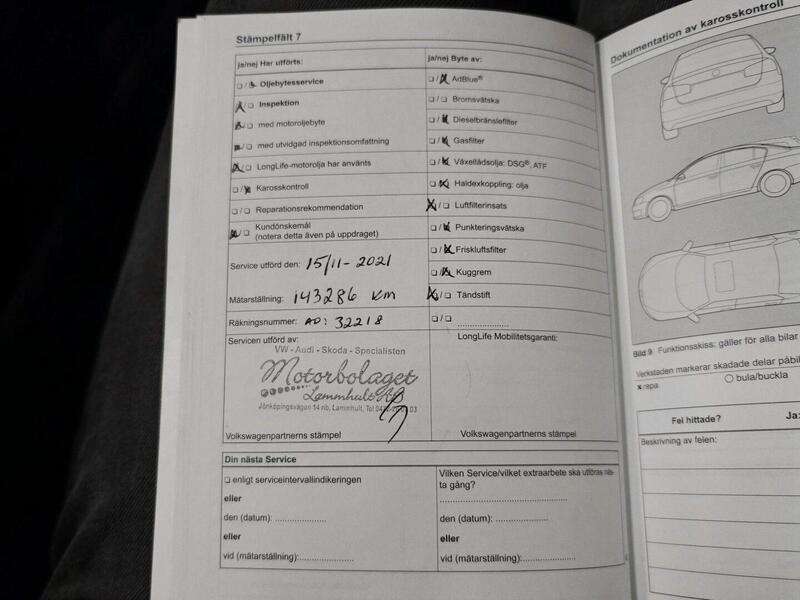 Stämpelfält 7
ja/nej Har utförts:
Oljebytesservice
Inspektion
med motoroljebyte
med utvidgad inspektionsomfattning
LongLife-motorolja har använts
Karosskontroll
Reparationsrekommendation
Kundönskemål
(notera detta även på uppdraget)
Service utförd den: 15/11-2021
Mätarställning: 143286 km
Räkningsnummer: AO: 32218
ja/nej Byte av:
AdBlue®
Bromsvätska
Dieselbränslefilter
Gasfilter
Växellådsolja: DSG®, ATF
Haldexkoppling: olja
Luftfilterinsats
Punkteringsvätska
Friskluftsfilter
Kuggrem
Tändstift
Servicen utförd av:
VW - Audi - Skoda - Specialisten
Motorbolaget
Lammhult AB
Jönköpingsvägen 14 nb, Lammhult, Tel
Volkswagenpartnerns stämpel
LongLife Mobilitetsgaranti:
Volkswagenpartnerns stämpel
Din nästa Service
enligt serviceintervallindikeringen
eller
den (datum):
eller
vid (mätarställning):
Vilken Service/vilket extraarbete ska utföras näs-
ta gång?
den (datum):
eller
vid (mätarställning):
Dokumentation av karosskontroll
Bild 9 Funktionsskiss: gäller för alla bilar
Verkstaden markerar skadade delar påbil
x repa
bula/buckla
Fel hittade? Ja:
Beskrivning av felen: